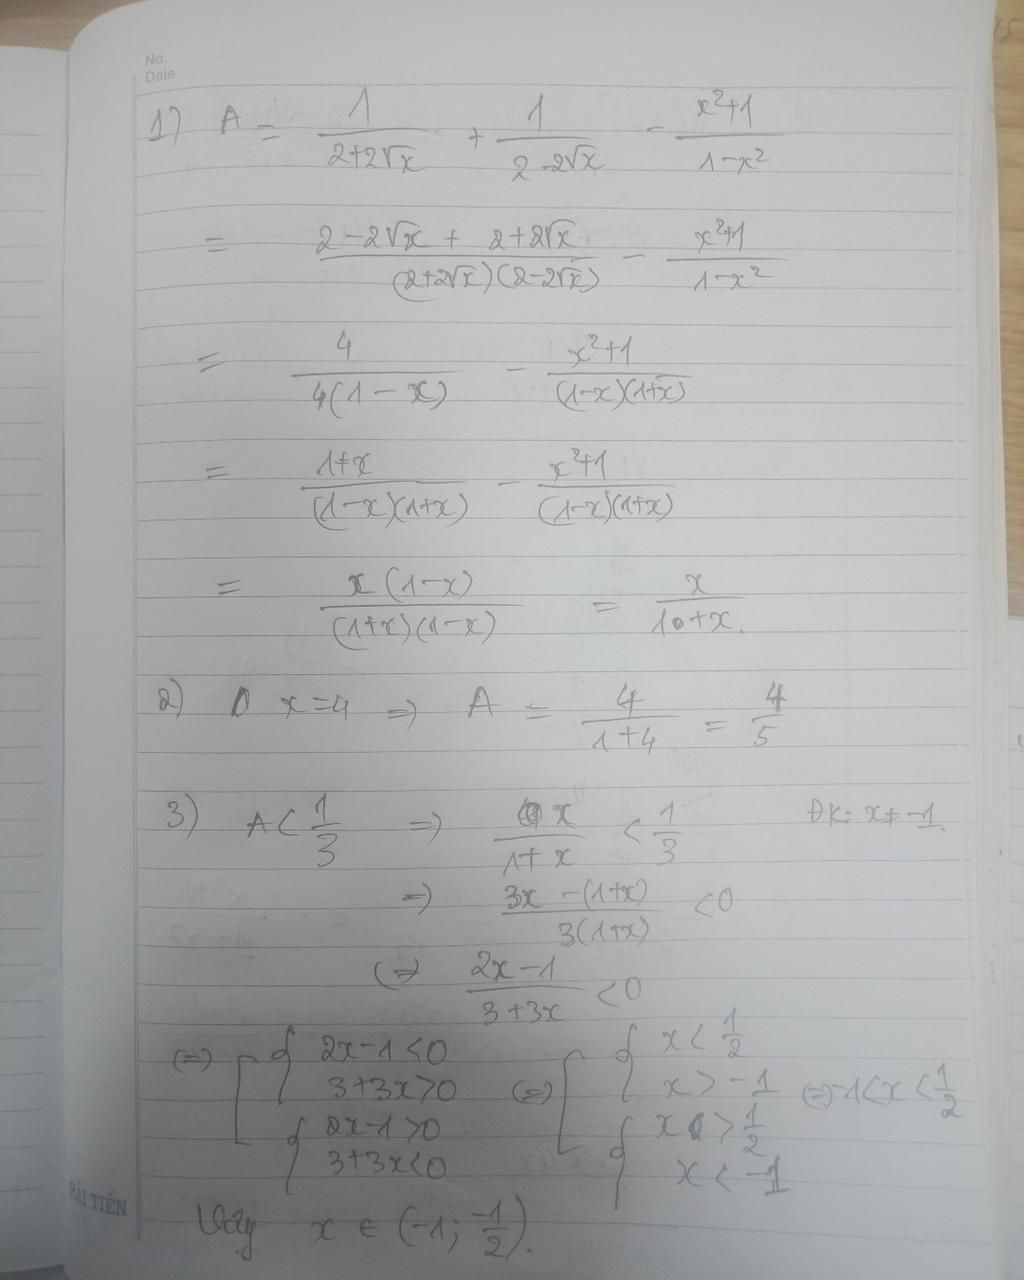 No.
Date
1) A = 1/(2+2√x) + 1/(2-2√x) - (x²+1)/(1-x²)
= (2-2√x + 2+2√x)/((2+2√x)(2-2√x)) - (x²+1)/(1-x²)
= 4/(4(1-x)) - (x²+1)/((1-x)(1+x))
= (1+x)/((1-x)(1+x)) - (x²+1)/((1-x)(1+x))
= x(1-x)/((1+x)(1-x)) = x/(1+x).
2) x=4 => A = 4/(1+4) = 4/5
3) A < 1/3 => x/(1+x) < 1/3 ĐK: x ≠ -1.
=> (3x-(1+x))/(3(1+x)) < 0
(=) (2x-1)/(3+3x) < 0
(=) [ { 2x-1<0 (=) [ { x < 1/2
3+3x>0 x > -1 (=) -1<x<1/2
{ 2x-1>0 { x > 1/2
3+3x<0 x < -1
Vậy x ∈ (-1; -1/2).
HẢI TIẾN